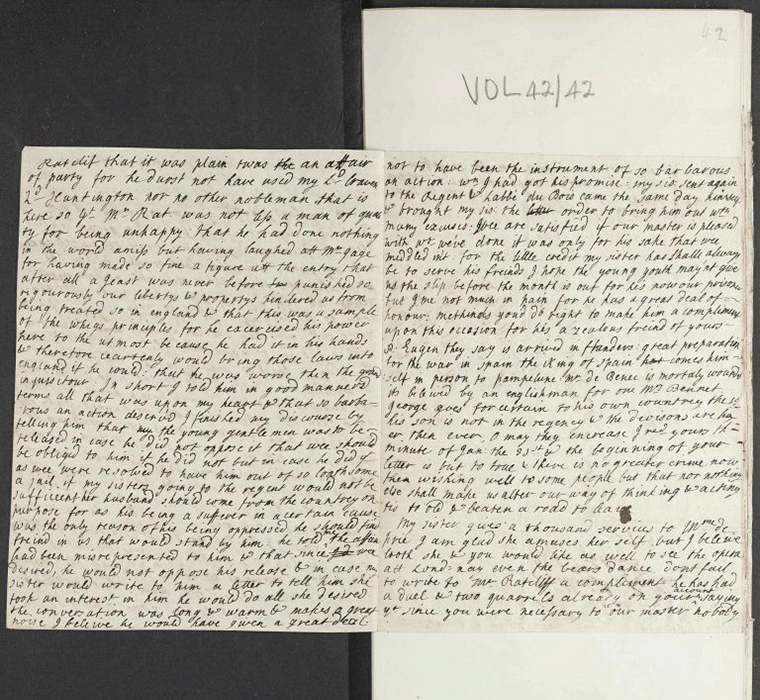 42
VOL 42/42
Ratclif that it was plain twas the an affair
of party for he durst not have used my Ld Craven
Ld Huntington nor no other nobleman that is
here so yt Mr Rat: was not less a man of qua
ty for being unhappy that he had done nothing
in the world amiss but having laughed att Mr Gage
for having made so fine a figure att the entry that
after all a jeast was never before punished so
rigourously our libertys & propertys hindered us from
being treated so in england & that this was a sample
of the whigs principles for he excercised his power
here to the utmost because he had it in his hands
& therefore certenly would bring those laws into
england if he could: that he was worse then the
inquisitour. In short I told him in good manuerd
terms all that was upon my heart & that so barba=
rous an action deserved I finished my discourse by
telling him that the young gentleman was to be
released in case he did not oppose it that wee should
be obliged to him if he did not but in case he did if
as wee were resolved to have him out of so loathsome
a jail, if my sisters going to the regent would not be
sufficent her husband should come from the countrey on
purpose for as his being a sufferer in a certain cause
was the only reason of his being oppressed he should find
freind in us that would stand by him: he told me the affair
had been misrepresented to him & that since wee
desired, he would not oppose his release & in case my
sister would write to him a letter to tell him she
took an interest in him he would do all she desired
the conversation was long & warm & makes a great
noise I beleive he would have given a great deal
not to have been the instrument of so barbarous
an action: wn I had got his promise: my sis: sent again
to the Regent & l'abbé du Bois came the same day himself
& brought my sis: the order to bring him out with
many excuses: Wee are satisfied if our master is pleased
with wt weve done it was only for his sake that wee
medled int: for the little credit my sister has shall always
be to serve his freinds I hope the young youth maynt give
us the slip before the month is out for hes now our prisoner
but I'me not much in pain for he has a great deal of
honour: methinks youd do right to make him a compliment
upon this occasion for hes a zealous freind of yours
P: Eugen they say is arrived in flanders: great preparation
for the war in spain the King of spain comes him=
self in person to pampelune Mr de Benec is mortaly wounded
tis beleived by an englishman for one Mr Bennet
george goes for certain to his own countrey the
his son is not in the regency & the devisions are hi
er, then ever, o may they encrease I recd yours th=
minute of Jan: the 31st & the beginning of your
letter is but to true & there is no greater crime now
then wishing well to some people but that nor nothing
else shall make us alter our way of thinking & acting
tis to old & beaten a road to leave
My sister gives a thousand services to Mme de
prie I am glad she amuses her self but I beleive
both she & you would like as well to see the opera
att Lond: nay even the bears dance dont fail
to write to Mr Ratcliff a compliment he has had
a duel & two quarrells already on your account saying
yt since you were necessary to our master nobody